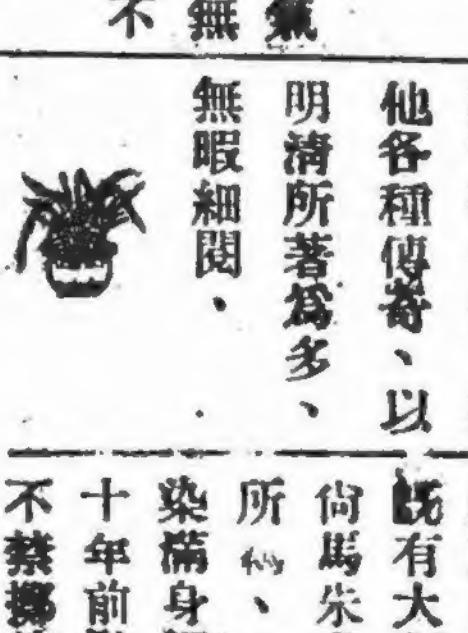 無
不
他各種傳奇、以
明清所著爲多、
無暇細閱、
既有大
尙馬朱
所、
染滿身
十年前
不禁擲